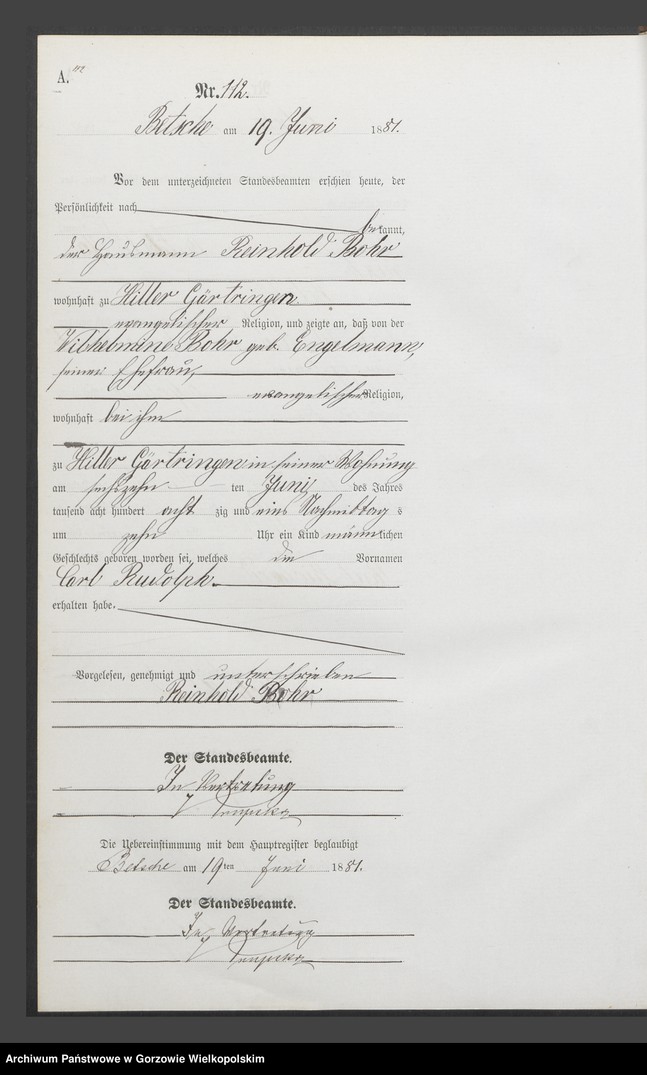 A. 112
Nr. 112.
Betsche am 19. Juni 1881.
Vor dem unterzeichneten Standesbeamten erschien heute, der
Persönlichkeit nach
bekannt,
der Hausmann Reinhold Bohr
wohnhaft zu Hiller Gärtringen
evangelischer Religion, und zeigte an, daß von der
Wilhelmine Bohr geb. Engelmann,
seiner Ehefrau,
evangelischer Religion,
wohnhaft bei ihm
zu Hiller Gärtringen in seiner Wohnung
am sechszehn ten Juni des Jahres
tausend acht hundert acht zig und eins Nachmittag s
um zehn Uhr ein Kind männlichen
Geschlechts geboren worden sei, welches die Vornamen
Carl Rudolph
erhalten habe.
Vorgelesen, genehmigt und unterschrieben
Reinhold Bohr
Der Standesbeamte.
In Vertretung
Die Uebereinstimmung mit dem Hauptregister beglaubigt
Betsche am 19ten Juni 1881.
Der Standesbeamte.
In Vertretung
Archiwum Państwowe w Gorzowie Wielkopolskim